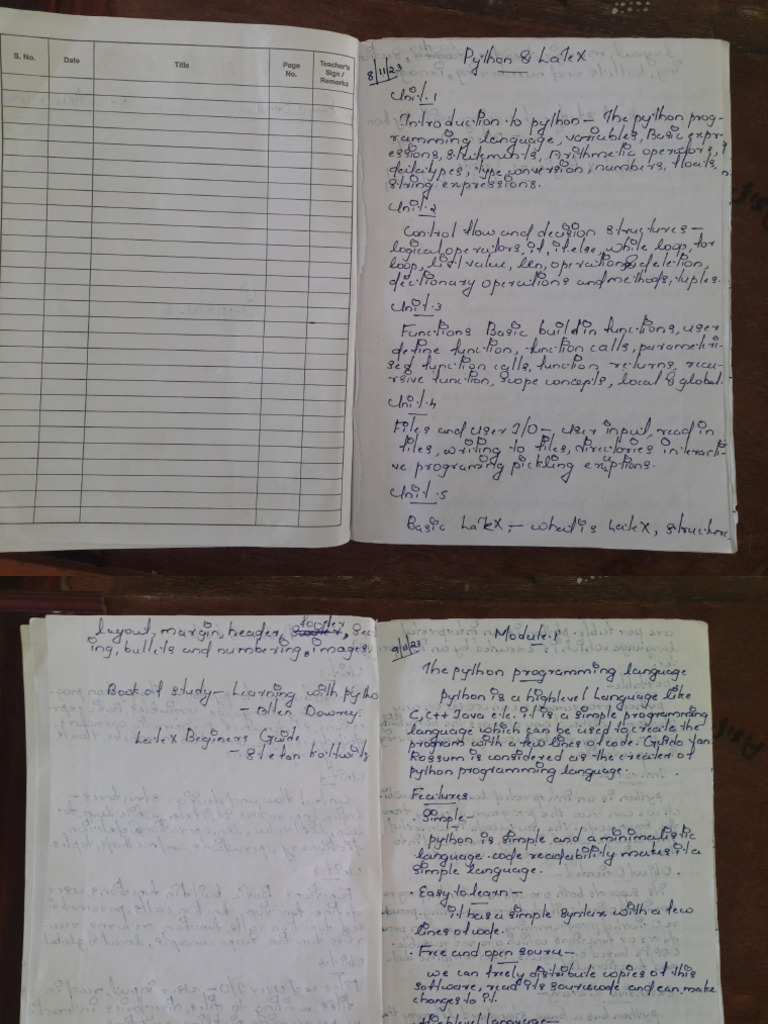 S. No.
Date
Title
Page No.
Teacher's Sign / Remarks
8/11/23
Python & LaTeX
Unit.1
Introduction to python - The python prog-
ramming language, variables, Basic expr-
essions, statements, Arithmetic operators,
datatypes, type conversion, numbers, floats,
string expressions.
Unit.2
Control flow and decision structures -
logical operators, if, if else, while loop, for
loop, list value, len, operation & deletion,
dictionary operations and methods, tuples.
Unit.3
Functions Basic build in functions, user
define function, function calls, parametri-
sed function calls, function returns, recu-
rsive function, scope concepts, local & global.
Unit.4
Files and user I/O -, user input, read in
files, writing to files, directories interacti-
ve programing pickling
Unit.5
Basic LaTeX, - what is LateX, structure
layout, margin, header, footer,
ing, bullets and numbering, images.
Book of study - Learning with pytho
- Allen Downey.
LateX Beginers Guide
- Stefan Kottwitz
9/11/23
Module.1
The python programming language
python is a highlevel Language like
C, C++ Java etc. it is a simple programming
language which can be used to create the
program with a few lines of code. Guido Van
Rossum is considered as the creater of
python programming language.
Features
. Simple -
python is simple and a minimalistic
language. code readability makes it a
simple language.
. Easy to learn -
it has a simple syntax with a few
lines of code.
. Free and open source -
we can freely distribute copies of this
software, read its sourcecode and can make
changes to it.
. Highlevel language -